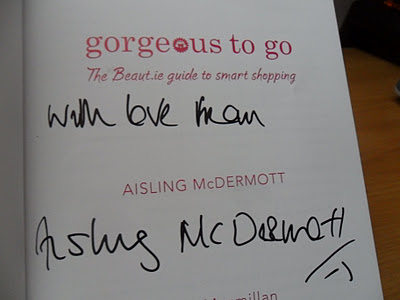 gorgeous to go
The Beaut.ie guide to smart shopping
with love from
AISLING McDERMOTT
Aisling McDermott
:-)